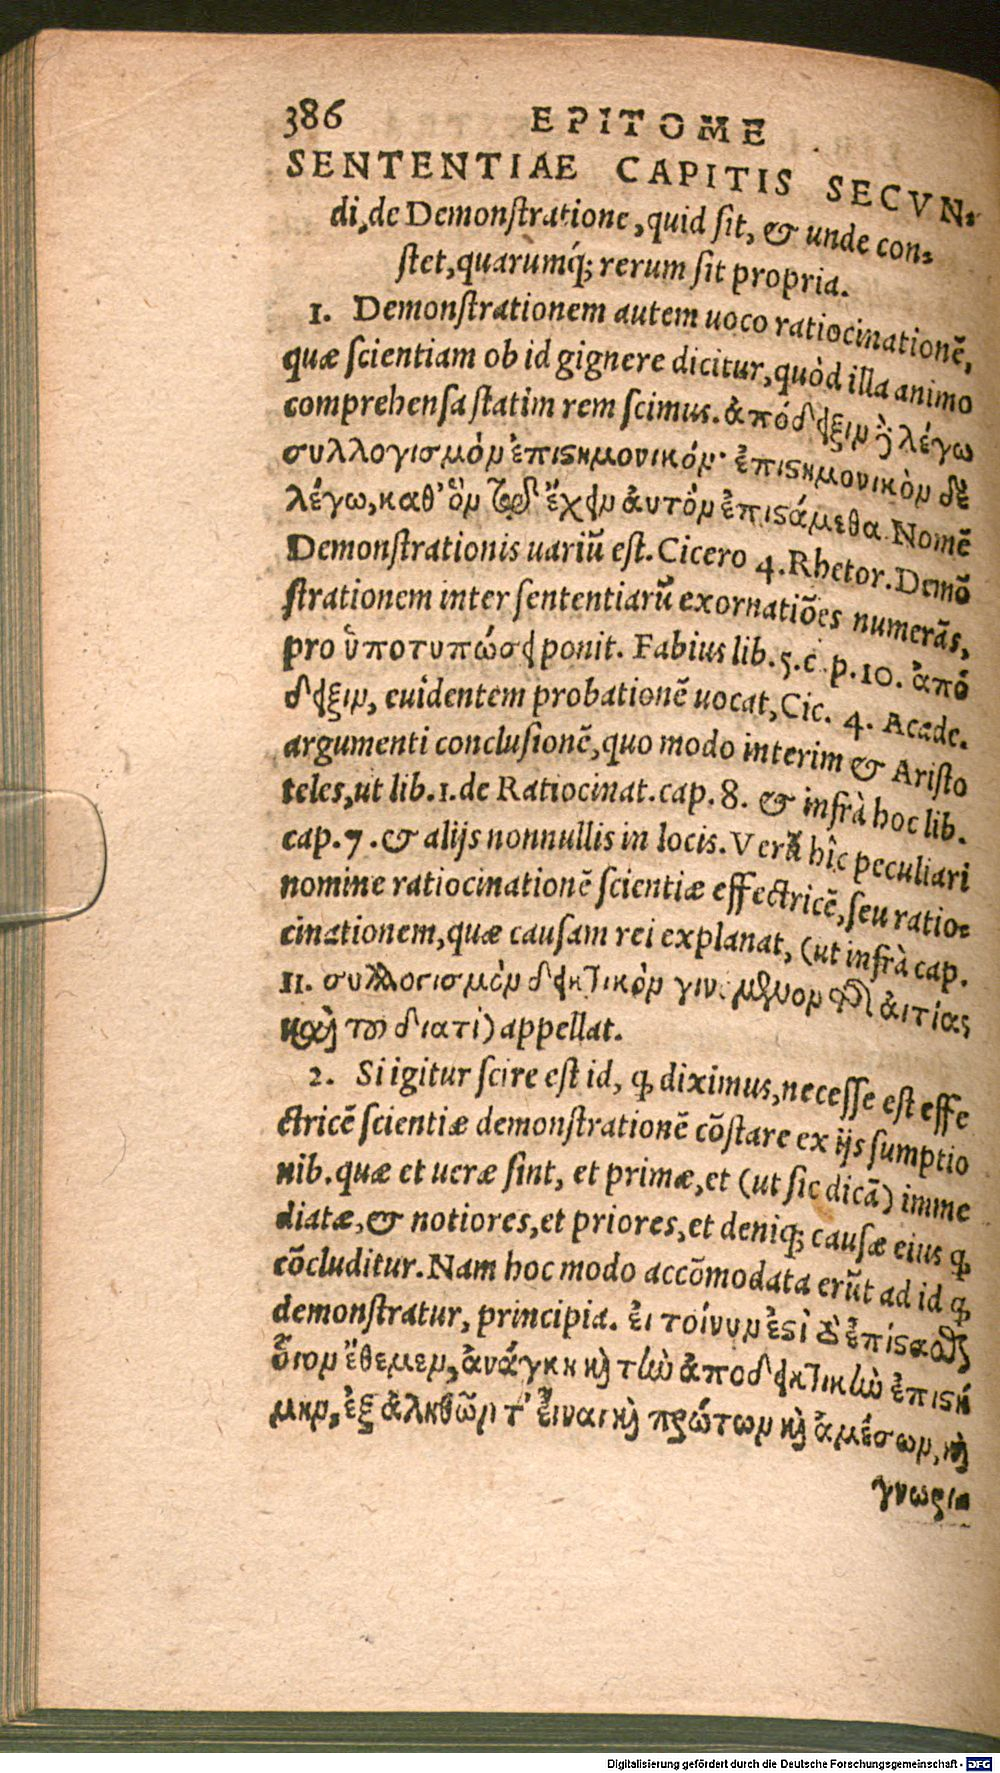 386 EPITOME
SENTENTIAE CAPITIS SECVN-
di, de Demonſtratione, quid ſit, & unde con-
ſtet, quarumq́; rerum ſit propria.
1. Demonſtrationem autem uoco ratiocinationē,
quæ ſcientiam ob id gignere dicitur, quòd illa animo
comprehenſa ſtatim rem ſcimus. ἀπόδειξιν δὲ λέγω
συλλογισμὸν ἐπιϛημονικόν· ἐπιϛημονικὸν δὲ
λέγω, καθ' ὃν τῷ ἔχειν ἀυτὸν ἐπιϛάμεθα. Nomē
Demonſtrationis uariū eſt. Cicero 4. Rhetor. Demō
ſtrationem inter ſententiarū exornatiōes numerās,
pro ὑποτυπώσει ponit. Fabius lib. 5. c. p. 10. ἀπό
δειξιν, euidentem probationē uocat, Cic. 4. Acade.
argumenti concluſionē, quo modo interim & Ariſto
teles, ut lib. 1. de Ratiocinat. cap. 8. & infrà hoc lib.
cap. 7. & alijs nonnullis in locis. Verū hîc peculiari
nomine ratiocinationē ſcientiæ effectricē, ſeu ratio-
cinationem, quæ cauſam rei explanat, (ut infrà cap.
11. συλλογισμὸν δεικτικὸν γινόμενον αἰτίας
καὶ τοῦ διατί) appellat.
2. Si igitur ſcire eſt id, ꝙ diximus, neceſſe eſt effe
ctricē ſcientiæ demonſtrationē cōſtare ex ijs ſumptio
nib. quæ et ueræ ſint, et primæ, et (ut ſic dicā) imme
diatæ, & notiores, et priores, et deniq; cauſæ eius ꝙ
cōcluditur. Nam hoc modo accōmodata erūt ad id ꝙ
demonſtratur, principia. εἰ τοίνυν ἐϛὶ τὸ ἐπίϛαϑαι
οἷον ἔθεμεν, ἀνάγκη κὴ τὴν ἀποδεικτικὴν ἐπιϛή
μην, ἐξ ἀληθῶν τ' εἶναι κὴ πρώτων κὴ ἀμέσων, κὴ
γνωρι-
Digitalisierung gefördert durch die Deutsche Forschungsgemeinschaft - DFG